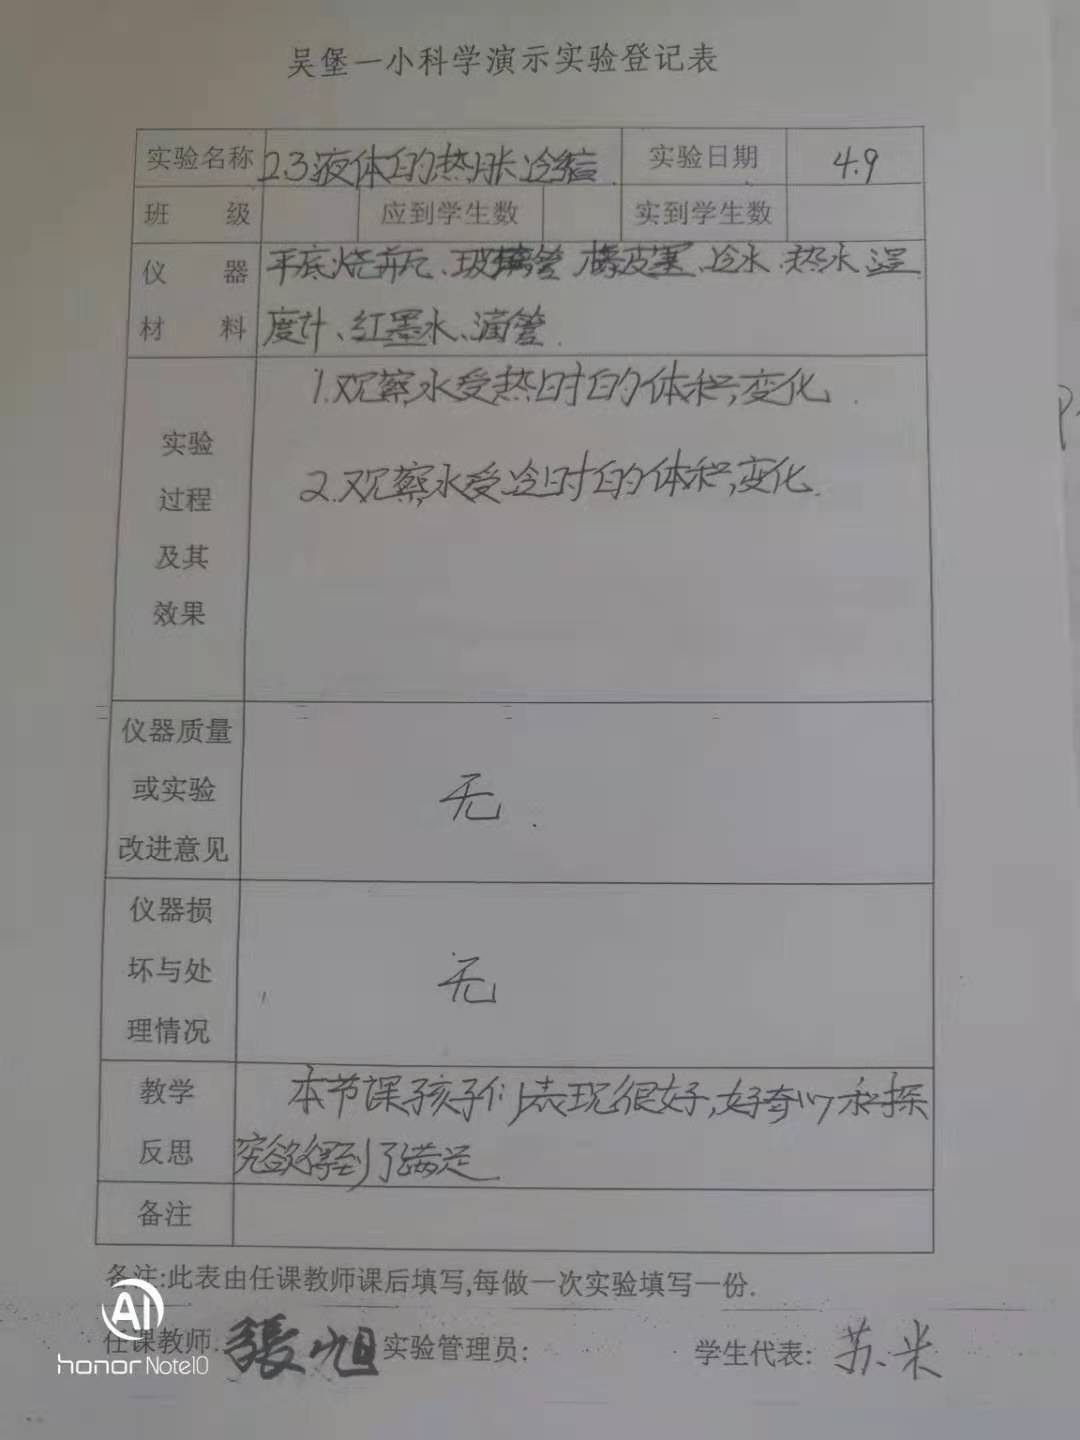 吴堡一小科学演示实验登记表
实验名称 2.3液体的热胀冷缩 实验日期 4.9
班 级 应到学生数 实到学生数
仪 器 平底烧瓶、玻璃管、橡皮塞、冷水、热水、温
材 料 度计、红墨水、滴管
1.观察水受热时的体积变化.
实验
2.观察水受冷时的体积变化.
过程
及其
效果
仪器质量
或实验 无.
改进意见
仪器损
坏与处 无
理情况
教学 本节课孩子们表现很好,好奇心和探
反思 究欲得到了满足
备注
备注:此表由任课教师课后填写,每做一次实验填写一份.
任课教师: 張旭 实验管理员: 学生代表: 苏米
AI
honor Note10